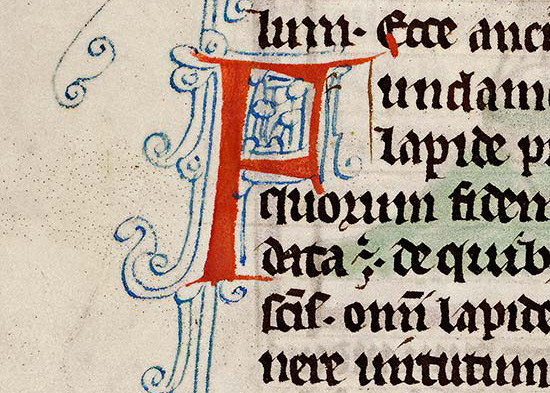 lum· Ecce anci
Fundam
lapide pr
quorum fiden
data ⁊ de quib
scīs· om̄i lapide
nere uirtutum